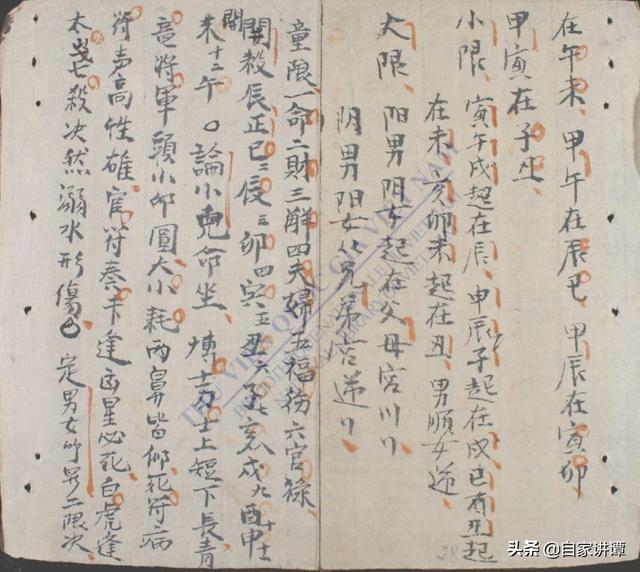 在午未、甲午在辰巳、甲辰在寅卯
甲寅在子丑、
小限、寅午戌起在辰、申辰子起在戌巳酉丑起
在未、亥卯未起在丑、男順女逆、
大限、阳男阴女起在父母宮
阴男阳女 兄弟宮逆
童限、一命二財三解四夫婦五福 六官祿
開殺辰正巳二辰三卯四寅五丑六子 亥 戌九酉十申十一
開
未十二午〇論小兒命坐 博士力士上短下長青
竜將軍頭小卯圓大小耗両鼻皆仰死符病
符声高性雄官符奏书逢凶星必死白虎逢
太歲七殺决然溺水形傷〇定男女 男二限次
28
THƯ VIỆN QUỐC GIA VIỆT NAM
头条 @自家讲谭